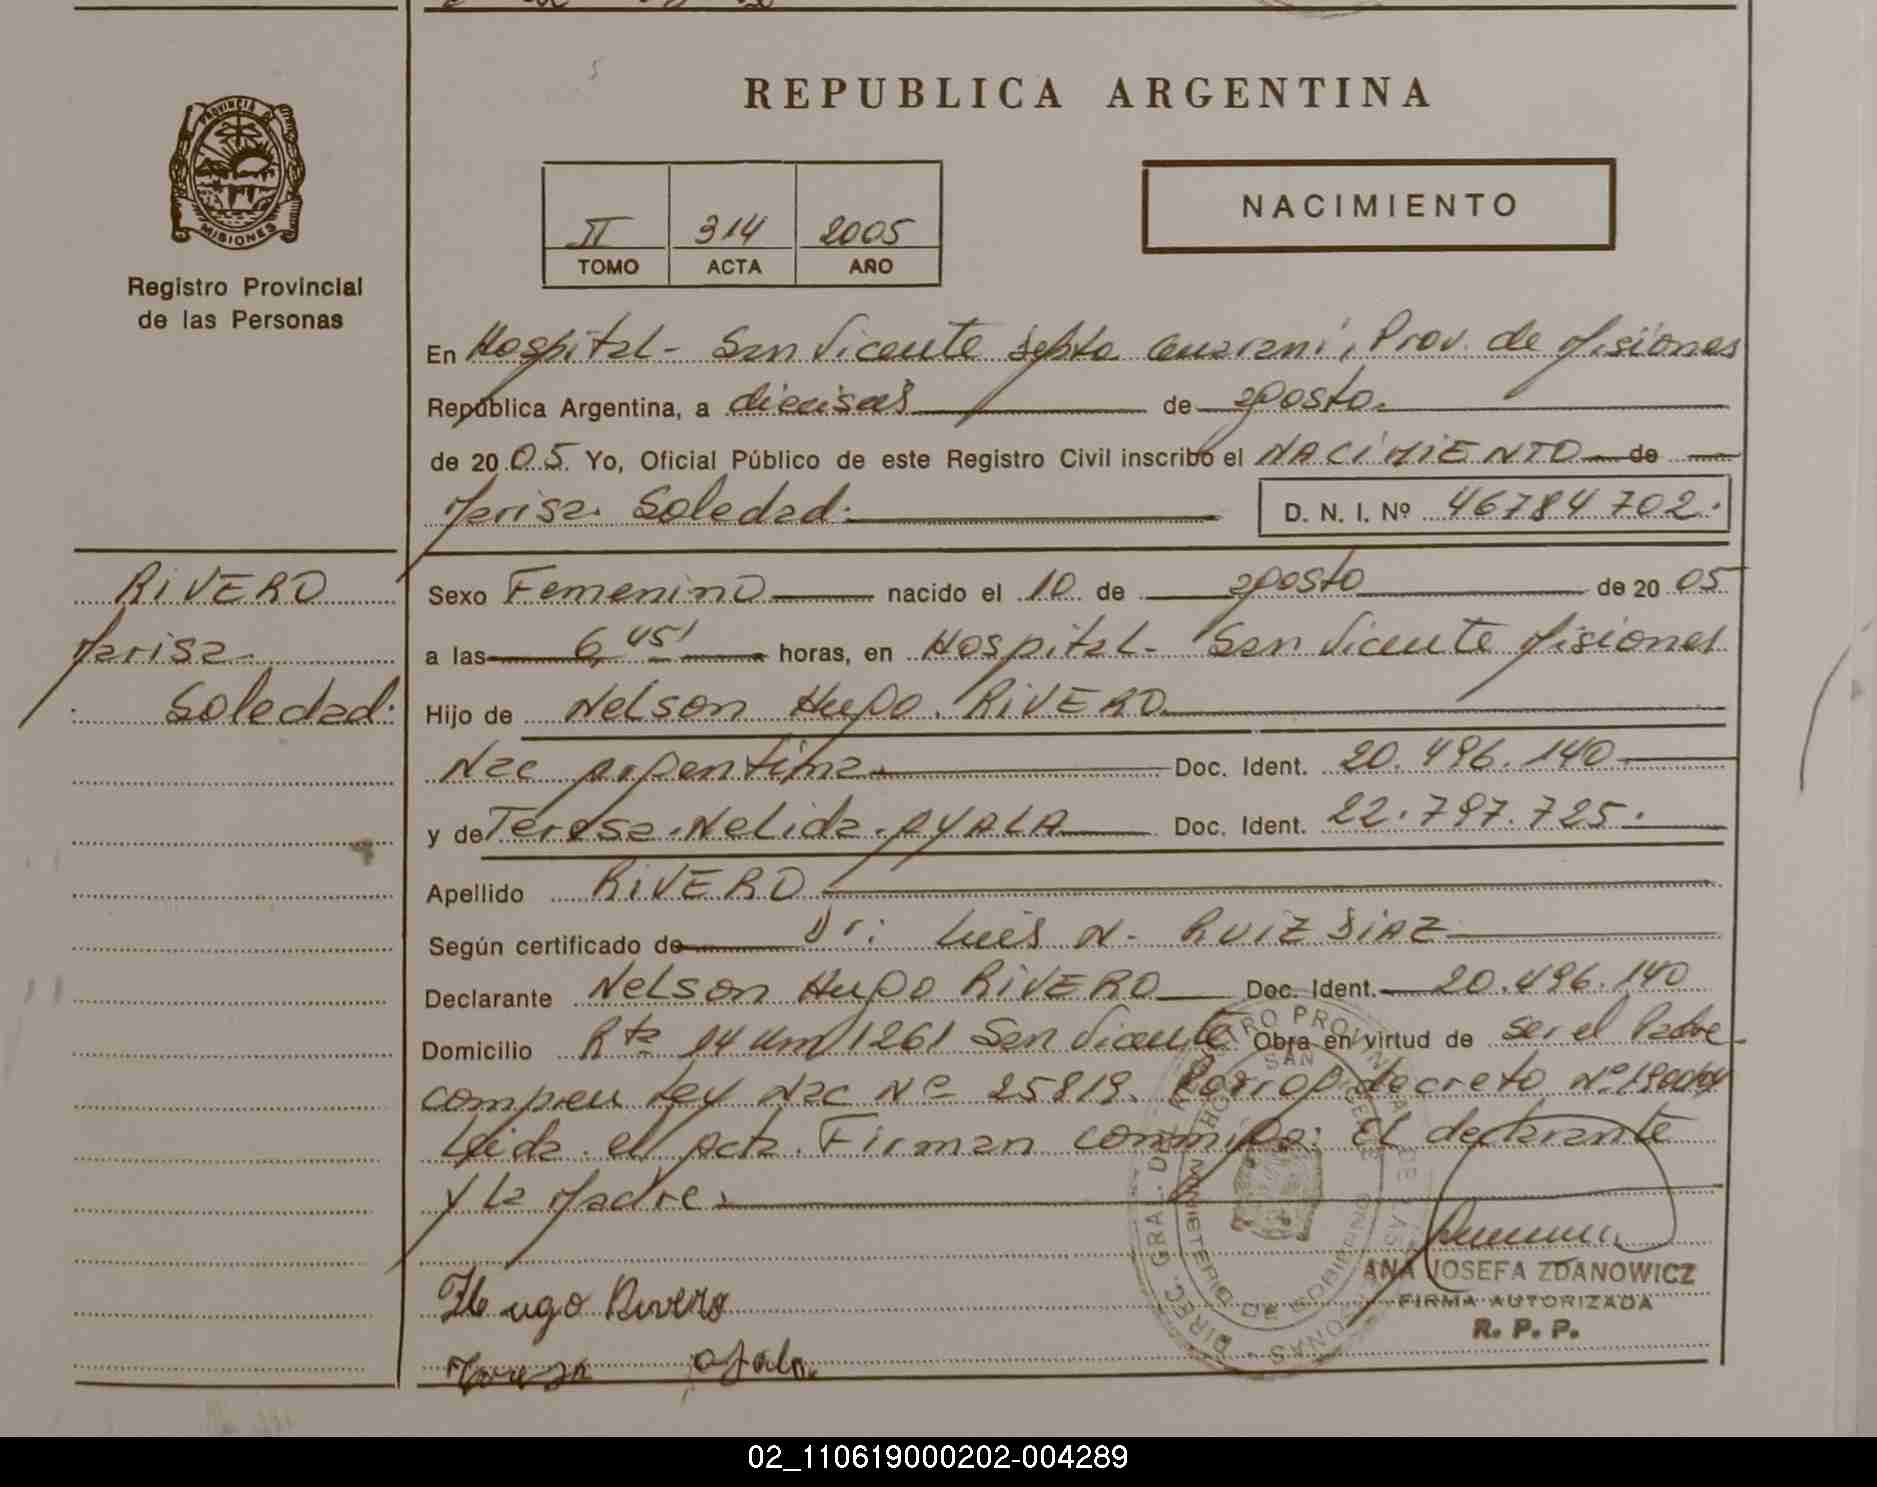 REPUBLICA ARGENTINA
PROVINCIA DE
MISIONES
Registro Provincial
de las Personas
NACIMIENTO
II 314 2005
TOMO ACTA AÑO
En Hospital - San Vicente Depto Guarani, Prov. de Misiones
República Argentina, a dieciseis de agosto.
de 2005. Yo, Oficial Público de este Registro Civil inscribo el NACIMIENTO de
Marisa Soledad. D. N. I. Nº 46784702.
RIVERO
Marisa
Soledad.
Sexo Femenino nacido el 10 de agosto de 2005
a las 6,45' horas, en Hospital - San Vicente Misiones
Hijo de Nelson Hugo RIVERO
Nac argentina Doc. Ident. 20.496.140
y de Teresa Nelida AYALA Doc. Ident. 22.797.725.
Apellido RIVERO
Según certificado de Dr: Luis N. RUIZ DIAZ
Declarante Nelson Hugo RIVERO Doc. Ident. 20.496.140
Domicilio Rta 14 Km 1261 San Vicente Obra en virtud de ser el Padre
Ley Nac Nº 25819. decreto Nº
Leida el acta. Firman conmigo: El declarante
y la Madre.
Hugo Rivero
Teresa Ayala.
ANA JOSEFA ZDANOWICZ
FIRMA AUTORIZADA
R. P. P.
DIREC. GRAL. DEL REGISTRO PROVINCIAL DE LAS PERSONAS
MINISTERIO DE GOBIERNO
SAN VICENTE
02_110619000202-004289